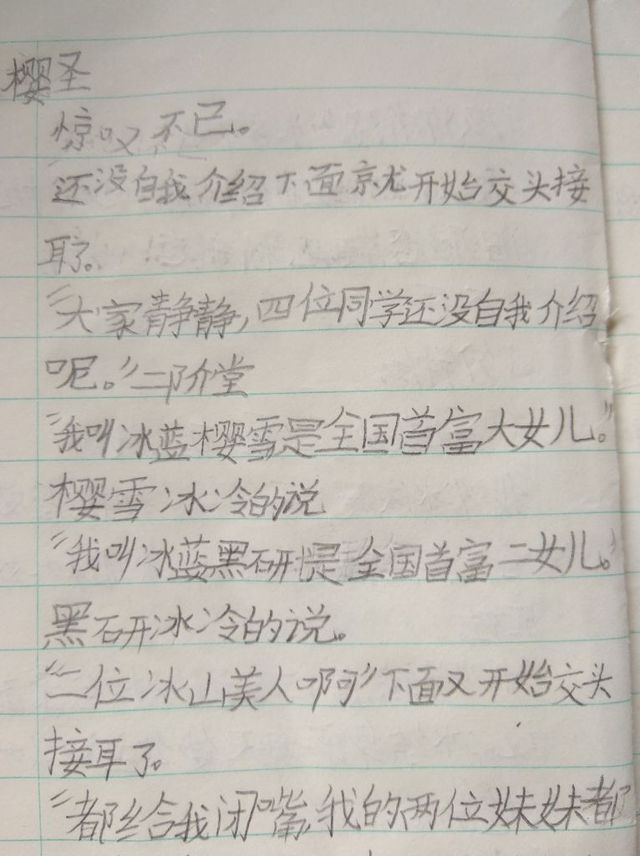 樱圣
惊叹不已。
还没自我介绍下面就开始交头接
耳了。
“大家静静,四位同学还没自我介绍
呢。”二阶堂
“我叫冰蓝樱雪是全国首富大女儿。”
樱雪冰冷的说
“我叫冰蓝黑研是全国首富二女儿。
黑研冰冷的说。
“二位冰山美人啊”下面又开始交头
接耳了。
“都给我闭嘴,我的两位妹妹都